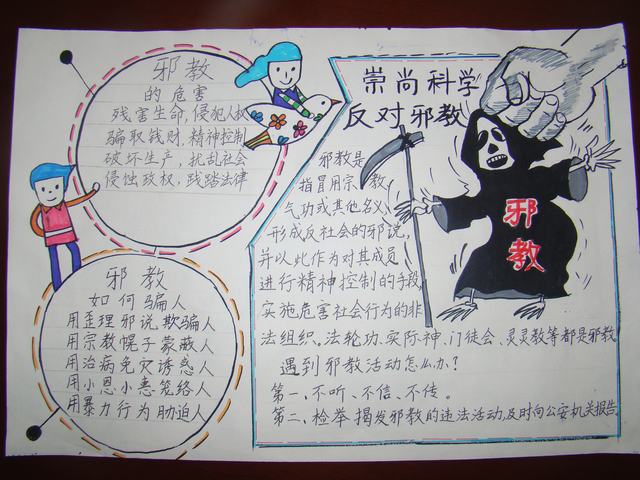 邪教
的危害
残害生命,侵犯人权
骗取钱财,精神控制
破坏生产,扰乱社会
侵蚀政权,践踏法律
邪教
如何骗人
用歪理邪说欺骗人
用宗教幌子蒙蔽人
用治病免灾诱惑人
用小恩小惠笼络人
用暴力行为胁迫人
崇尚科学
反对邪教
邪教是
指冒用宗教
气功或其他名义
形成反社会的邪说
并以此作为对其成员
进行精神控制的手段,
实施危害社会行为的非
法组织。法轮功、实际神、门徒会、灵灵教等都是邪教
遇到邪教活动怎么办?
第一、不听、不信、不传。
第二、检举揭发邪教的违法活动,及时向公安机关报告
邪
教